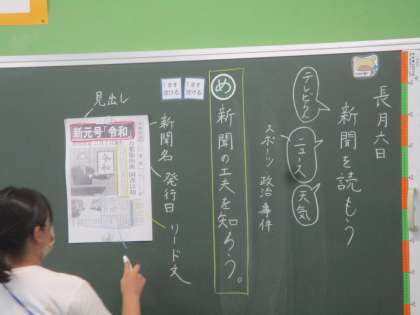 長月六日
新聞を読もう
テレビらん
ニュース
天気
スポーツ 政治 事件
め 新聞の工夫を知ろう。
1ます
空ける
1ます
空ける
見出し
新聞名
発行日
リード文
新元号「令和」
令和